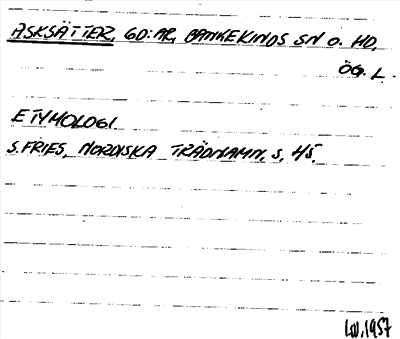 ASKSÄTTER, GD:AR, BANKEKINDS SN O. HD,
ÖG. L.
ETYMOLOGI.
S. FRIES, NORDISKA TRÄDNAMN, S. 45.
LW, 1957